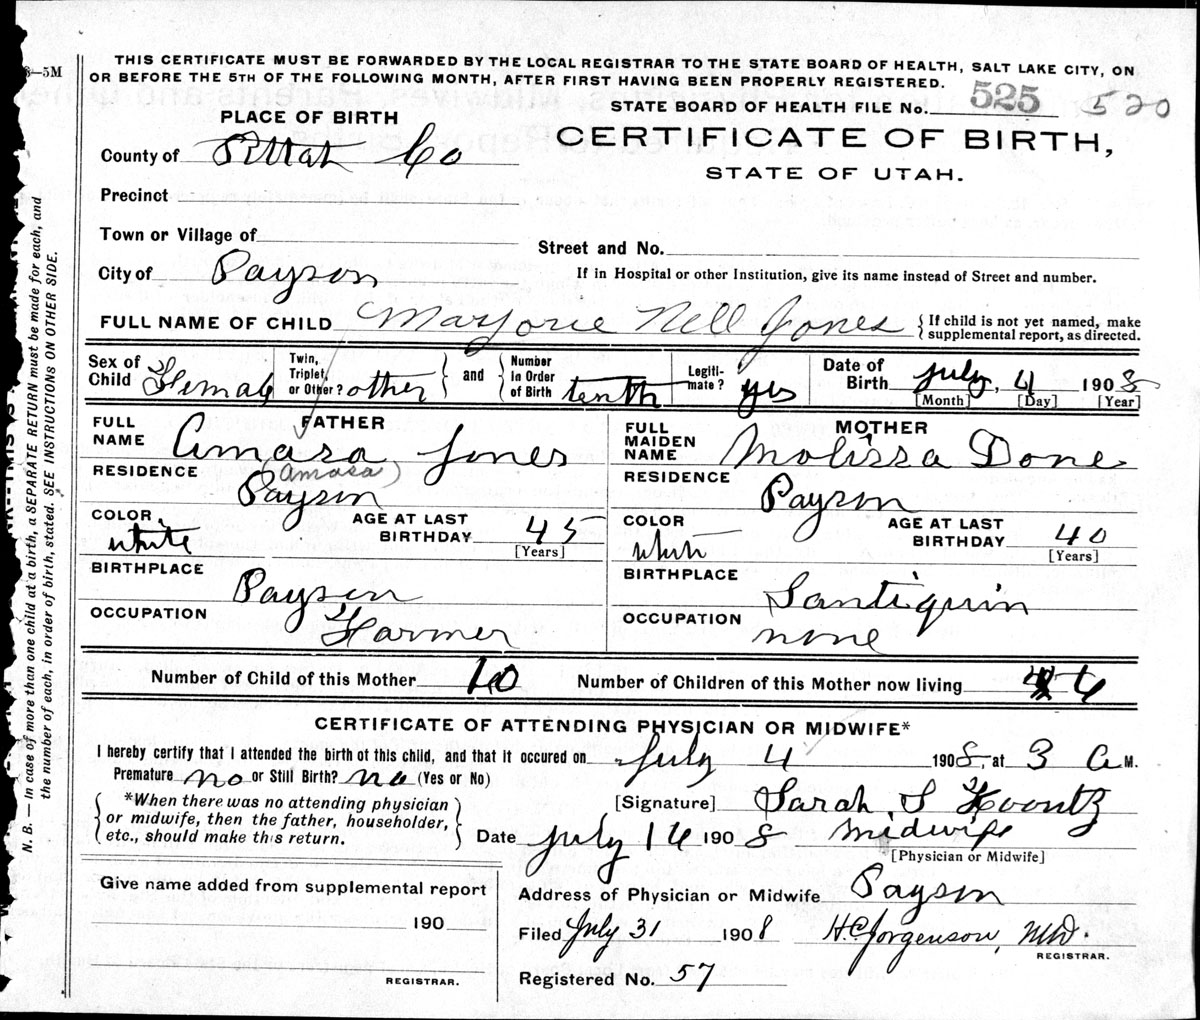 8—5M
THIS CERTIFICATE MUST BE FORWARDED BY THE LOCAL REGISTRAR TO THE STATE BOARD OF HEALTH, SALT LAKE CITY, ON
OR BEFORE THE 5TH OF THE FOLLOWING MONTH, AFTER FIRST HAVING BEEN PROPERLY REGISTERED.
STATE BOARD OF HEALTH FILE No. 525 520
PLACE OF BIRTH
CERTIFICATE OF BIRTH,
STATE OF UTAH.
County of Co
Precinct
Town or Village of
Street and No.
City of Payson
If in Hospital or other Institution, give its name instead of Street and number.
FULL NAME OF CHILD Marjorie Nell Jones { If child is not yet named, make supplemental report, as directed.
Sex of Child Female Twin, Triplet, or Other? other } and { Number in Order of Birth tenth Legiti-mate? yes Date of Birth July, 4 1908
[Month] [Day] [Year]
FATHER
FULL NAME Amasa Jones
(Amasa)
RESIDENCE Payson
COLOR white AGE AT LAST BIRTHDAY 45
[Years]
BIRTHPLACE Payson
OCCUPATION Farmer
MOTHER
FULL MAIDEN NAME Molissa Done
RESIDENCE Payson
COLOR white AGE AT LAST BIRTHDAY 40
[Years]
BIRTHPLACE Santiquin
OCCUPATION none
Number of Child of this Mother 10 Number of Children of this Mother now living 6
CERTIFICATE OF ATTENDING PHYSICIAN OR MIDWIFE*
I hereby certify that I attended the birth of this child, and that it occured on July 4 1908, at 3 A M.
Premature no or Still Birth? no (Yes or No)
{ *When there was no attending physician
or midwife, then the father, householder,
etc., should make this return. }
[Signature] Sarah S Koontz
Date July 16 1908 Midwife
[Physician or Midwife]
Give name added from supplemental report
190
REGISTRAR.
Address of Physician or Midwife Payson
Filed July 31 1908 H.C. Jorgenson, MD.
REGISTRAR.
Registered No. 57
N. B. — In case of more than one child at a birth, a SEPARATE RETURN must be made for each, and
the number of each, in order of birth, stated. SEE INSTRUCTIONS ON OTHER SIDE.